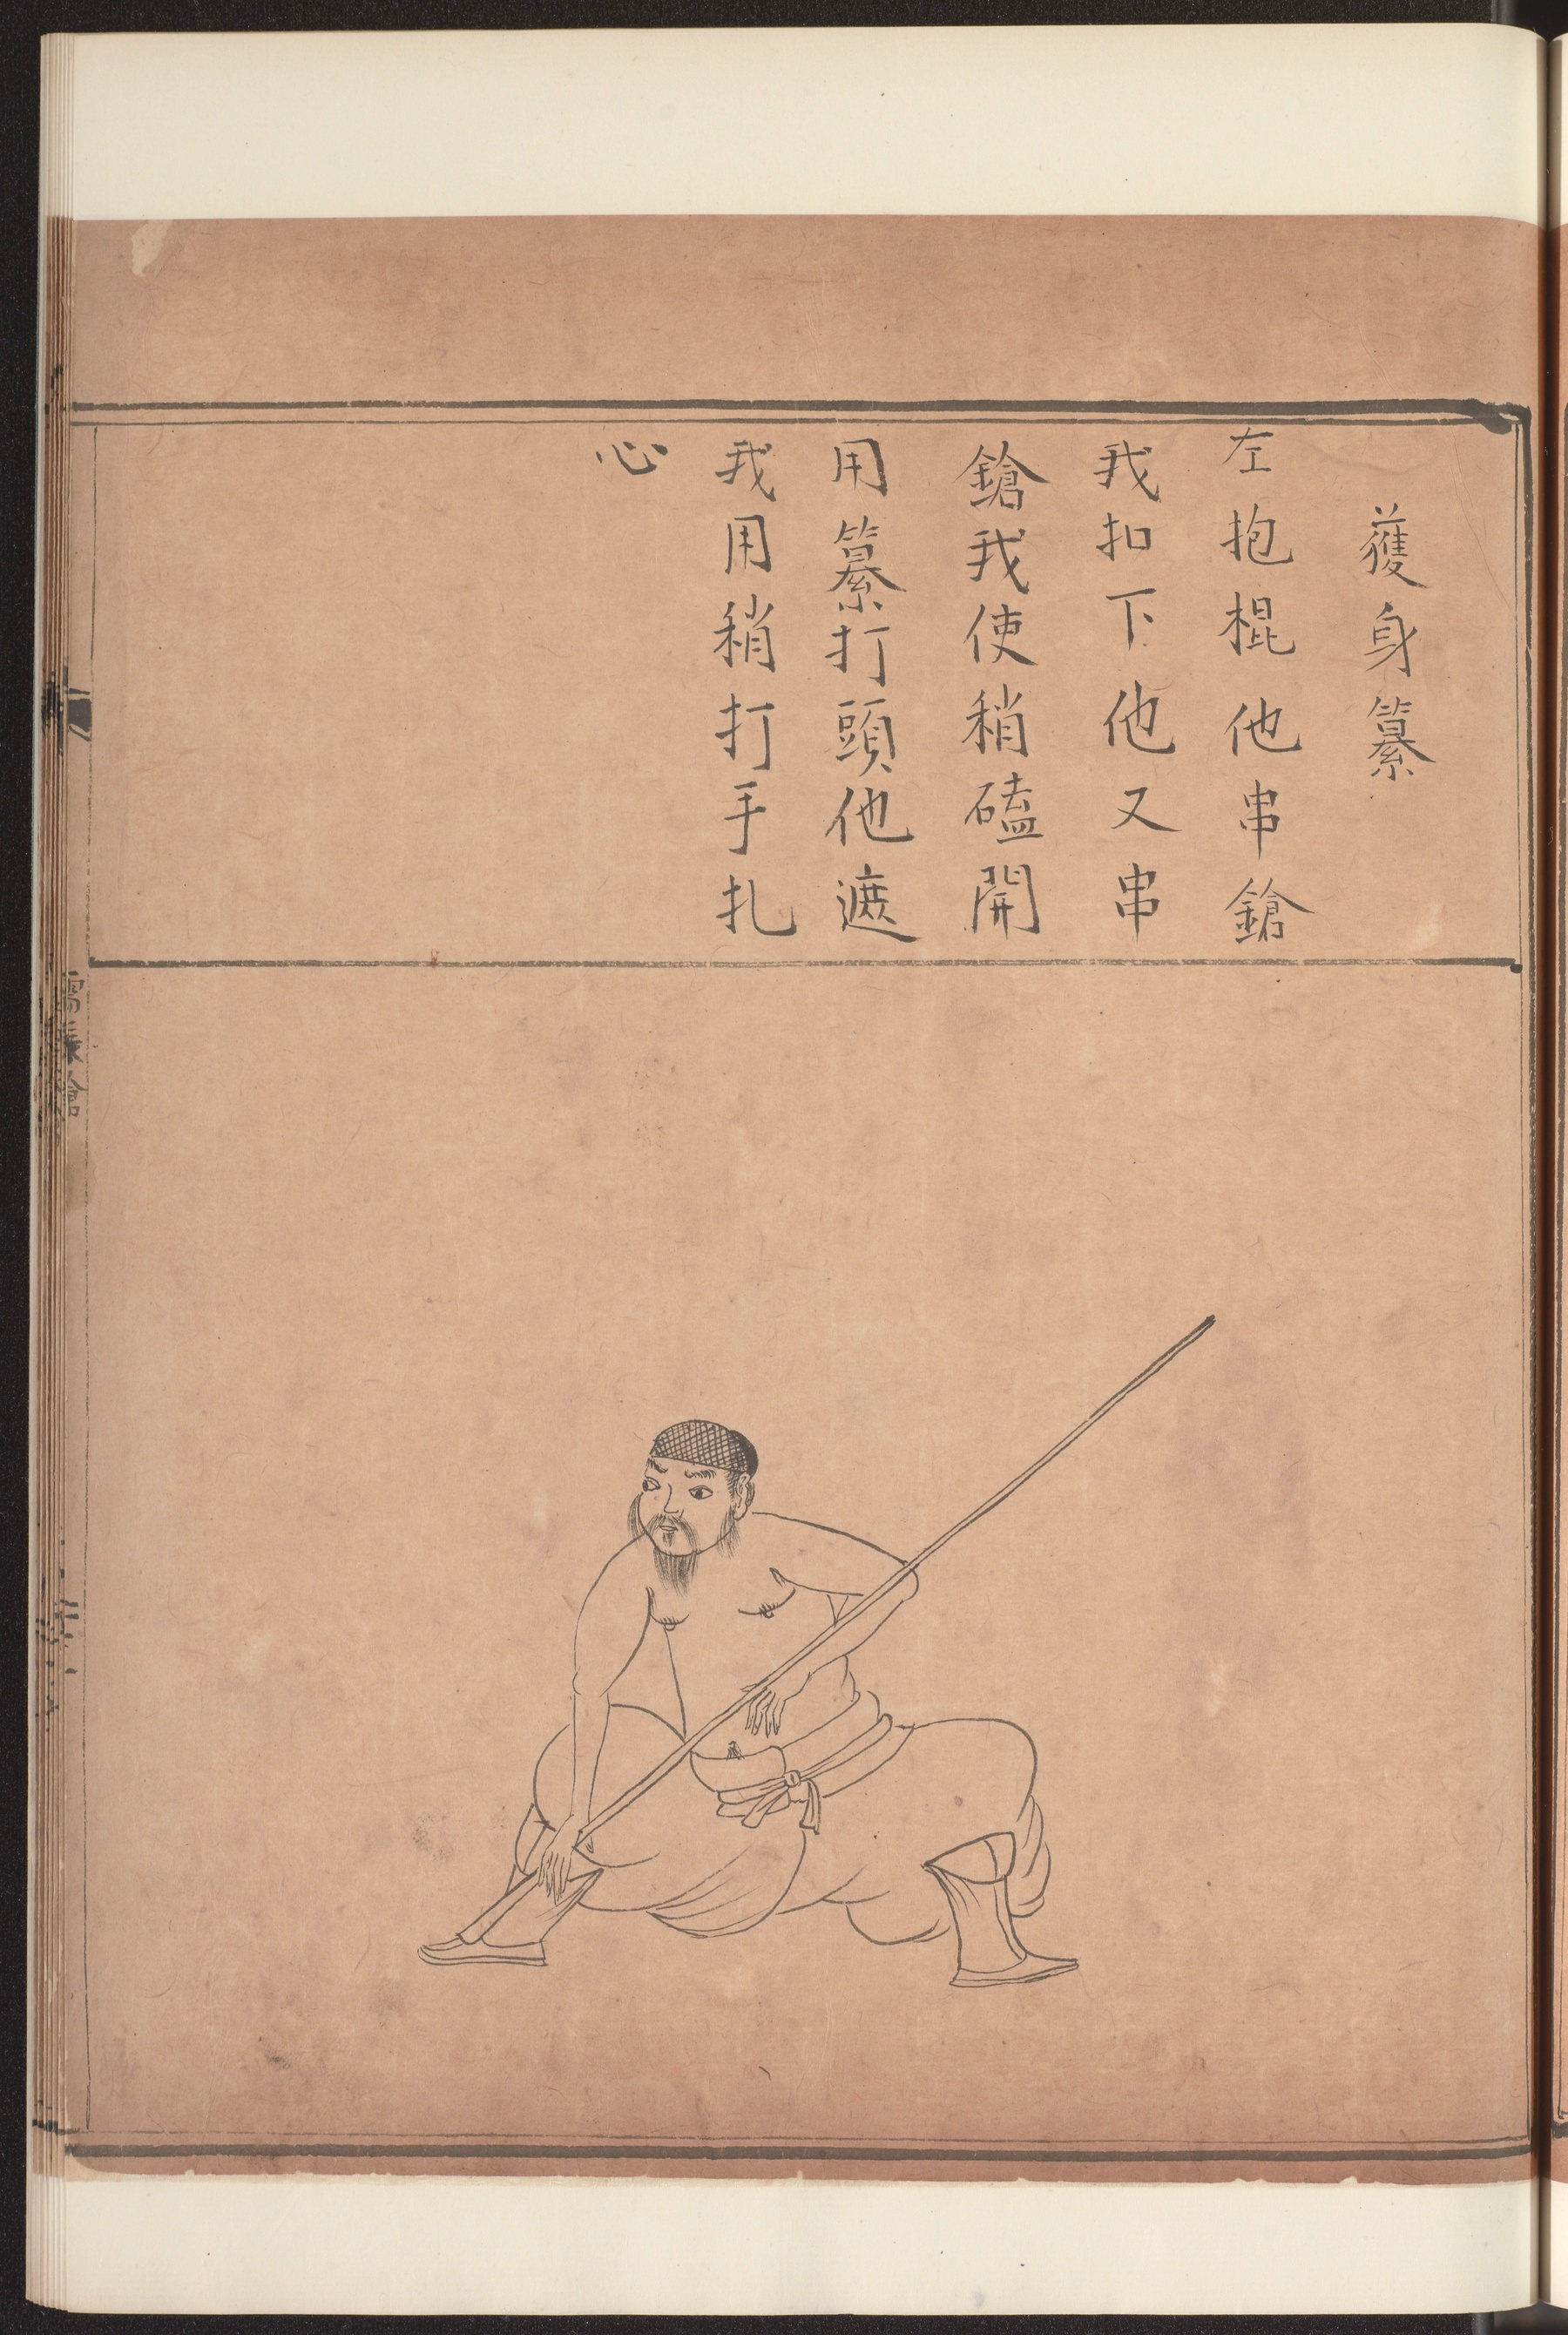 獲身纂
左抱棍他串鎗
我扣下他又串
鎗我使稍磕開
用纂打頭他遮
我用稍打手扎
心